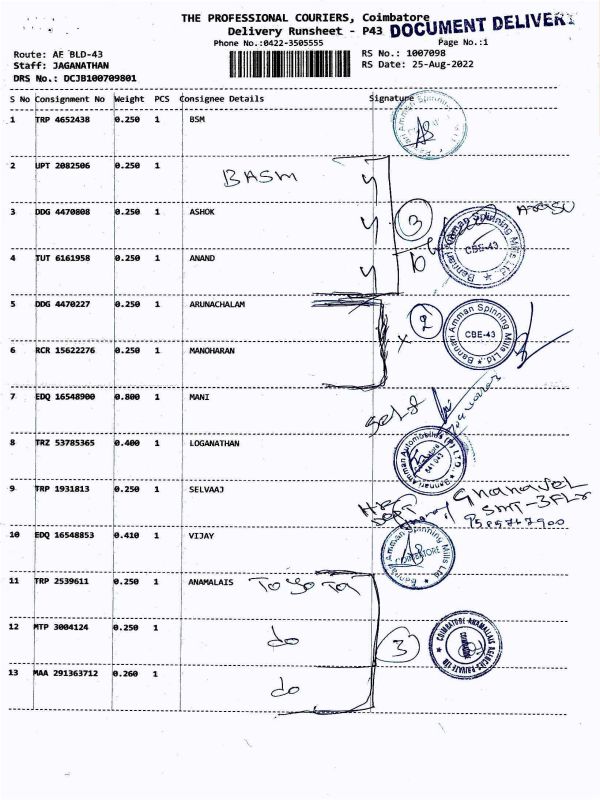 THE PROFESSIONAL COURIERS, Coimbatore
Delivery Runsheet - P43 DOCUMENT DELIVERY
Phone No.:0422-3505555 Page No.:1
Route: AF BLD-43 RS No.: 1007098
Staff: JAGANATHAN RS Date: 25-Aug-2022
DRS No.: DCJB100709801
S No Consignment No Weight PCS Consignee Details Signature
1 TRP 4652438 0.250 1 BSM
2 UPT 2082506 0.250 1 BASM
3 DDG 4470808 0.250 1 ASHOK 3
4 TUT 6161958 0.250 1 ANAND
Bannari Amman Spinning Mills Ltd. CBE-43
5 DDG 4470227 0.250 1 ARUNACHALAM 2
Bannari Amman Spinning Mills Ltd. CBE-43
6 RCR 15622276 0.250 1 MANOHARAN
7 EDQ 16548900 0.800 1 MANI Self
8 TRZ 53785365 0.400 1 LOGANATHAN
Bannari Amman Automobiles (P) LTD.
9 TRP 1931813 0.250 1 SELVAAJ
Gnanavel
10 EDQ 16548853 0.410 1 VIJAY
Bannari Amman Spinning Mills Ltd. COIMBATORE
11 TRP 2539611 0.250 1 ANAMALAIS Toyota
12 MTP 3004124 0.250 1 do 3
COIMBATORE ANAMALLAIS AGENCIES PRIVATE LTD
13 MAA 291363712 0.260 1 do